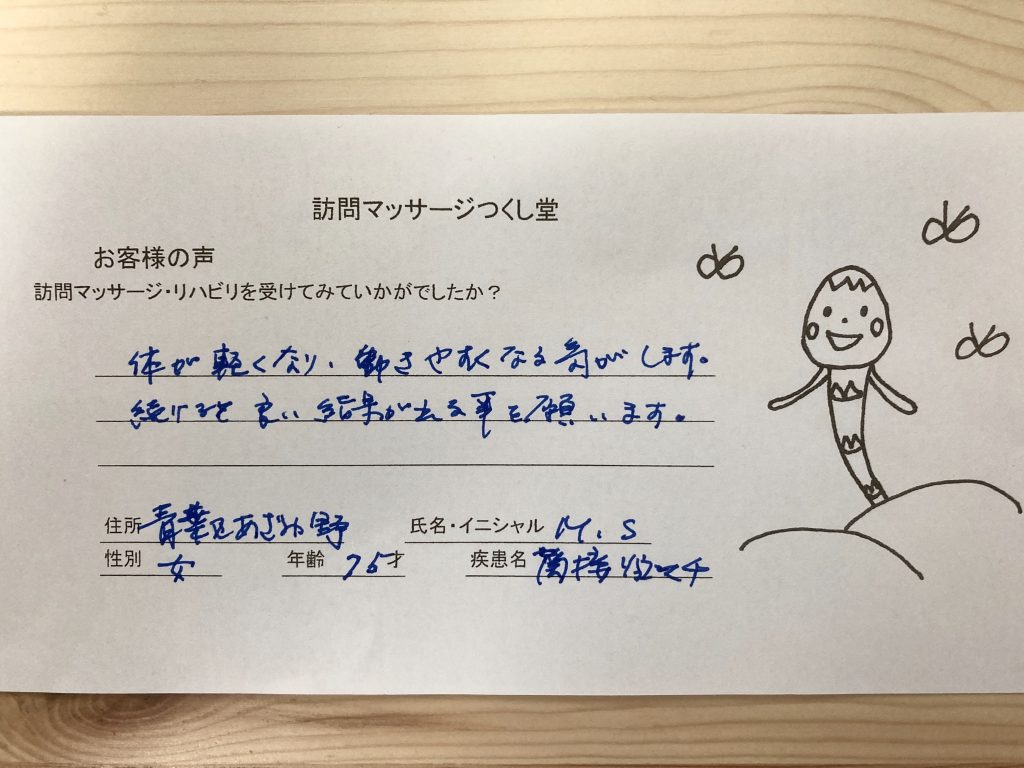 訪問マッサージつくし堂
お客様の声
訪問マッサージ・リハビリを受けてみていかがでしたか？
体が軽くなり、動きやすくなる気がします。
続けると良い結果が出る事を願います。
住所 青葉区あざみ野 氏名・イニシャル M.S
性別 女 年齢 75才 疾患名 関接リウマチ